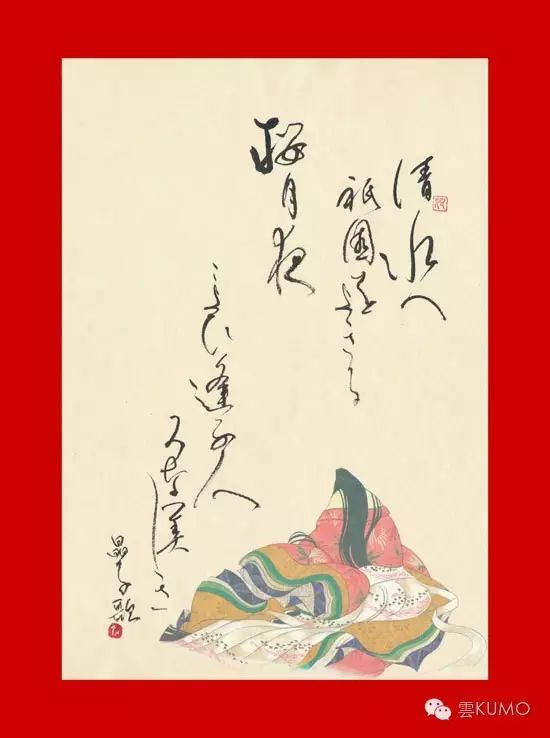 清水へ
祇園をよきる
桜月夜
こよひ逢ふ人
みな美しき
晶子歌
雲KUMO